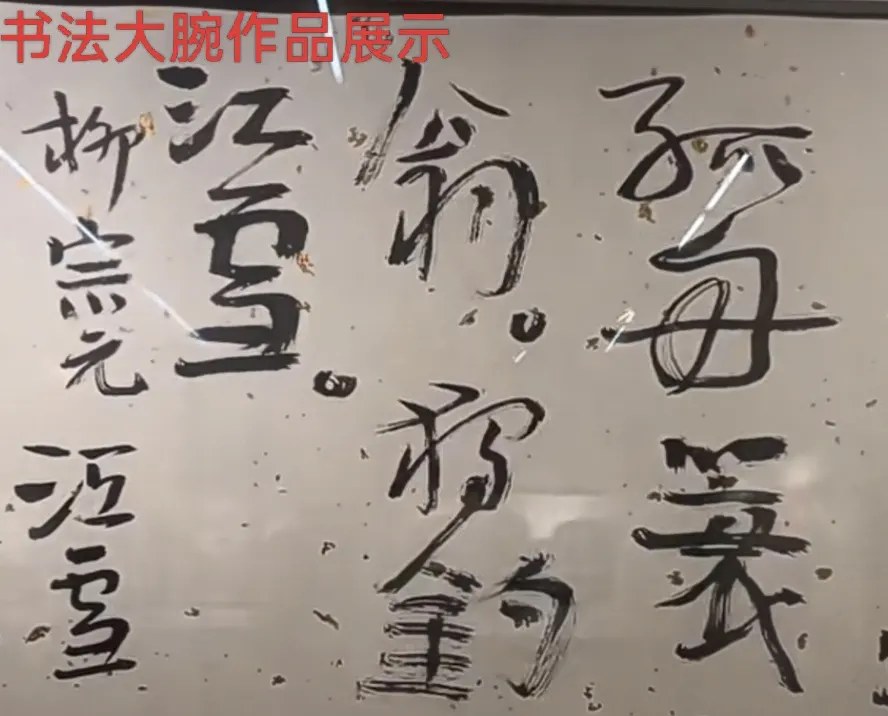 书法大腕作品展示
孤舟蓑
翁。獨釣
江雪。
柳宗元 江雪